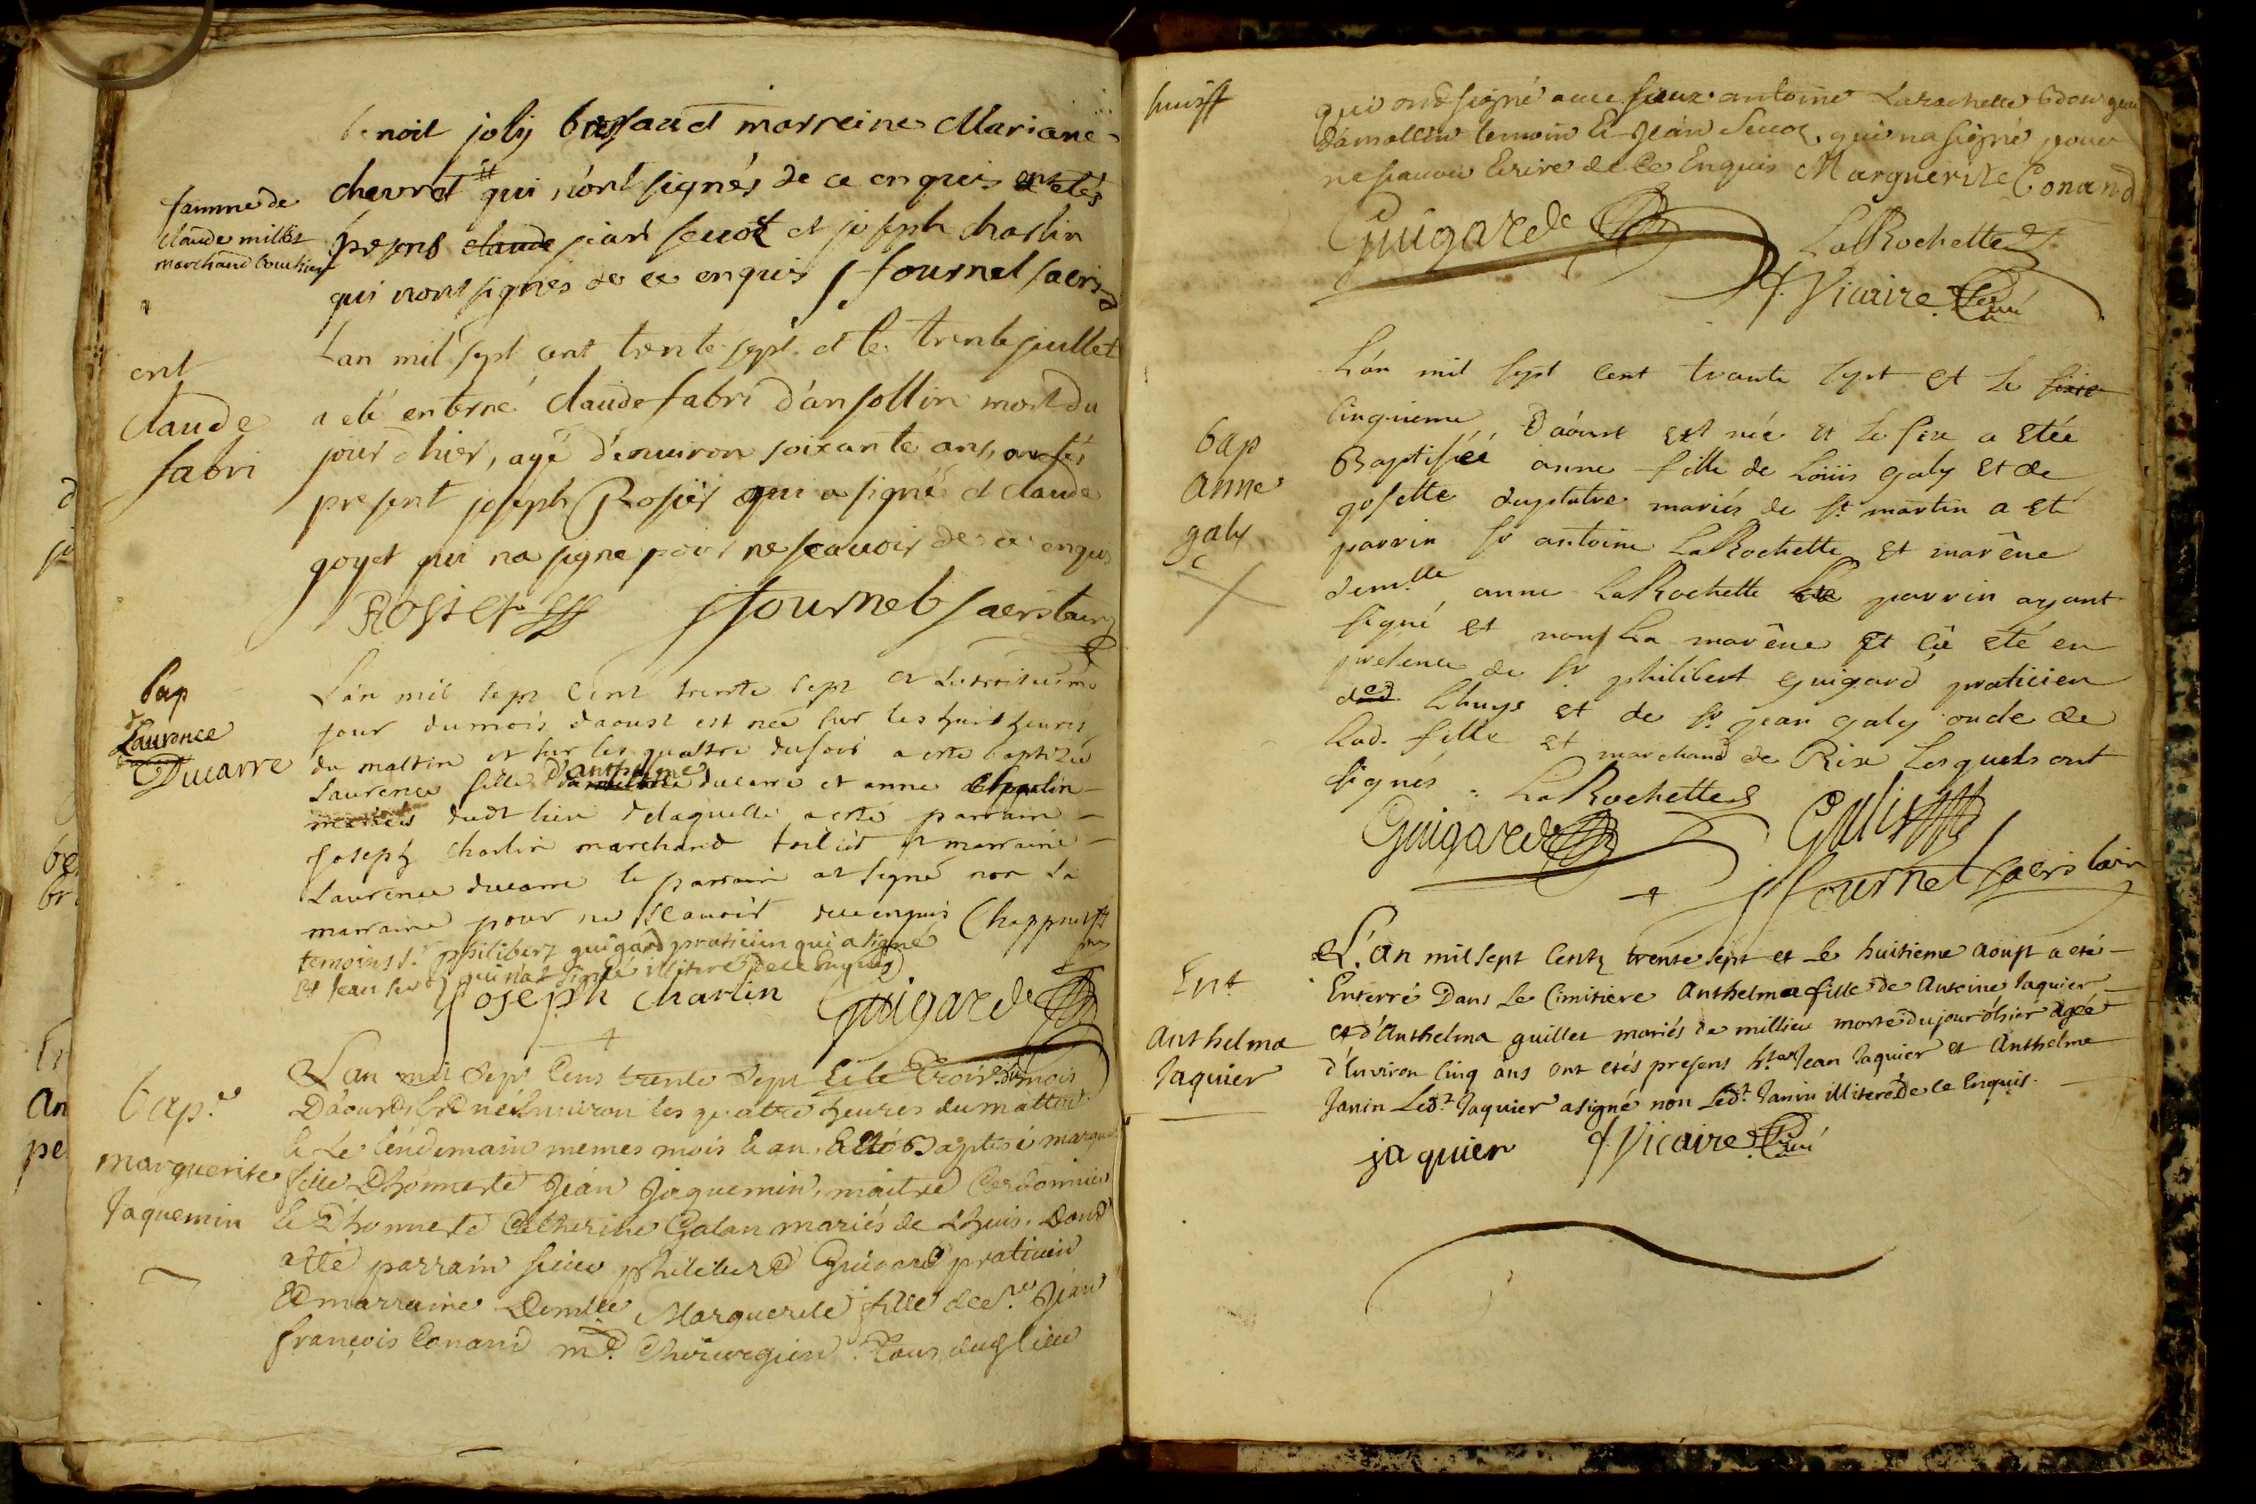 benoit joly et marreine Mariane
chevrot # qui n'ont signés de ce enquis etés
famme de
claude millet
marchand
presens claude jean sevoz et joseph charlin
qui n'ont signés de ce enquis J fournel sacrist
ent
claude
fabri
Lan mil sept cent trente sept et le trente juillet
a eté enterré claude fabri d'ansollin mort du
jour d'hier, agé d'environ soixante ans, ont etés
present joseph Rosier qui a signé et claude
goyet qui na signe pour ne scavoir de ce enquis
ROSIER J fournel sacristain
bap
Laurence
Ducarre
L'an mil sept cent trente sept et le troisieme
jour du mois daoust est née sur les huit heures
du mattin et sur les quattre du soir a esté baptizée
Laurence fille d'anthelme ducarre et anne
mariés dudt lieu de laquelle a esté parrain
joseph charlin marchand et marraine
Laurence ducarre le parrain at signé non la
marraine pour ne scavoir de ce enquis
temoins sr philibert guigard praticien qui a signé
Et jean sevoz qui n'at signé illiteré de ce Enquis
joseph charlin Guigard
bap.
marguerite
Jaquemin
Lan mil Sept Cens trente Sept Et le trois du mois
D'aoust Est née Environ les quatre heures du mattin
Et Le lendemain memes mois Et an, a Eté Baptisé
fille D'honneste Jean Jaquemin, maitre Cordonnier
Et D'honneste Catherine Galan mariés de Lhuis, Dont
a Eté parrain sieur philibert Guigard praticien
Et marraine Demlle Marguerite fille de sr Jean
françois Conand md Chirurgien Tous dud lieu
qui ont signé avec sieur antoine Larochette Bourgeois
Damollin temoin Et Jean Sevoz, qui na signé pour
ne scavoir Ecrire de Ce Enquis Marguerite Conand
Guigard LaRochette
Vicaire Curé
bap
anne
galy
L'an mil sept cent trante sept et le
cinquieme D'aoust est née et a etée
Baptisée anne fille de Loüis galy et de
mariés de st martin a eté
parrin sr antoine LaRochette et marêne
demlle anne LaRochette Le parrin ayant
signé et non La marêne et eté en
presence de sr philibert guigard praticien
de Lhuys et de sr jean galy oncle de
Lad. fille et marchand de Rix Lesquels ont
signés LaRochette
Guigard Galy
J fournel sacristain
Ent
Anthelma
Jaquier
L'an mil sept Cents trente sept et le huitieme aoust a eté
Enterré Dans le Cimitiere Anthelma fille de Antoine Jaquier
et d'Anthelma guillet mariés de millieu morte du jour d'hier agée
d'Environ Cinq ans ont etés presens Jean Jaquier et Anthelme
Janin Ledt Jaquier a signé non Ledt Janin illiteré de Ce Enquis.
jaquier Vicaire Curé